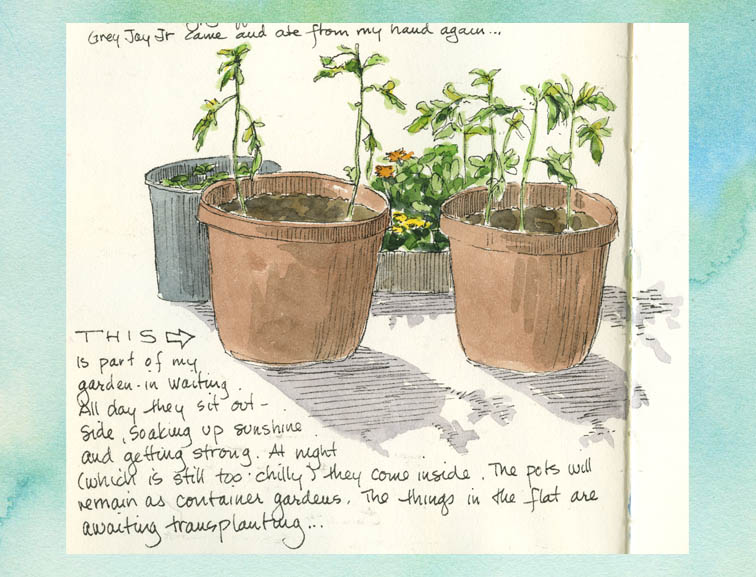 Grey Jay Jr came and ate from my hand again...
THIS ⇨
is part of my
garden-in waiting.
All day they sit out-
side, soaking up sunshine
and getting strong. At night
(which is still too chilly) they come inside. The pots will
remain as container gardens. The things in the flat are
awaiting transplanting...